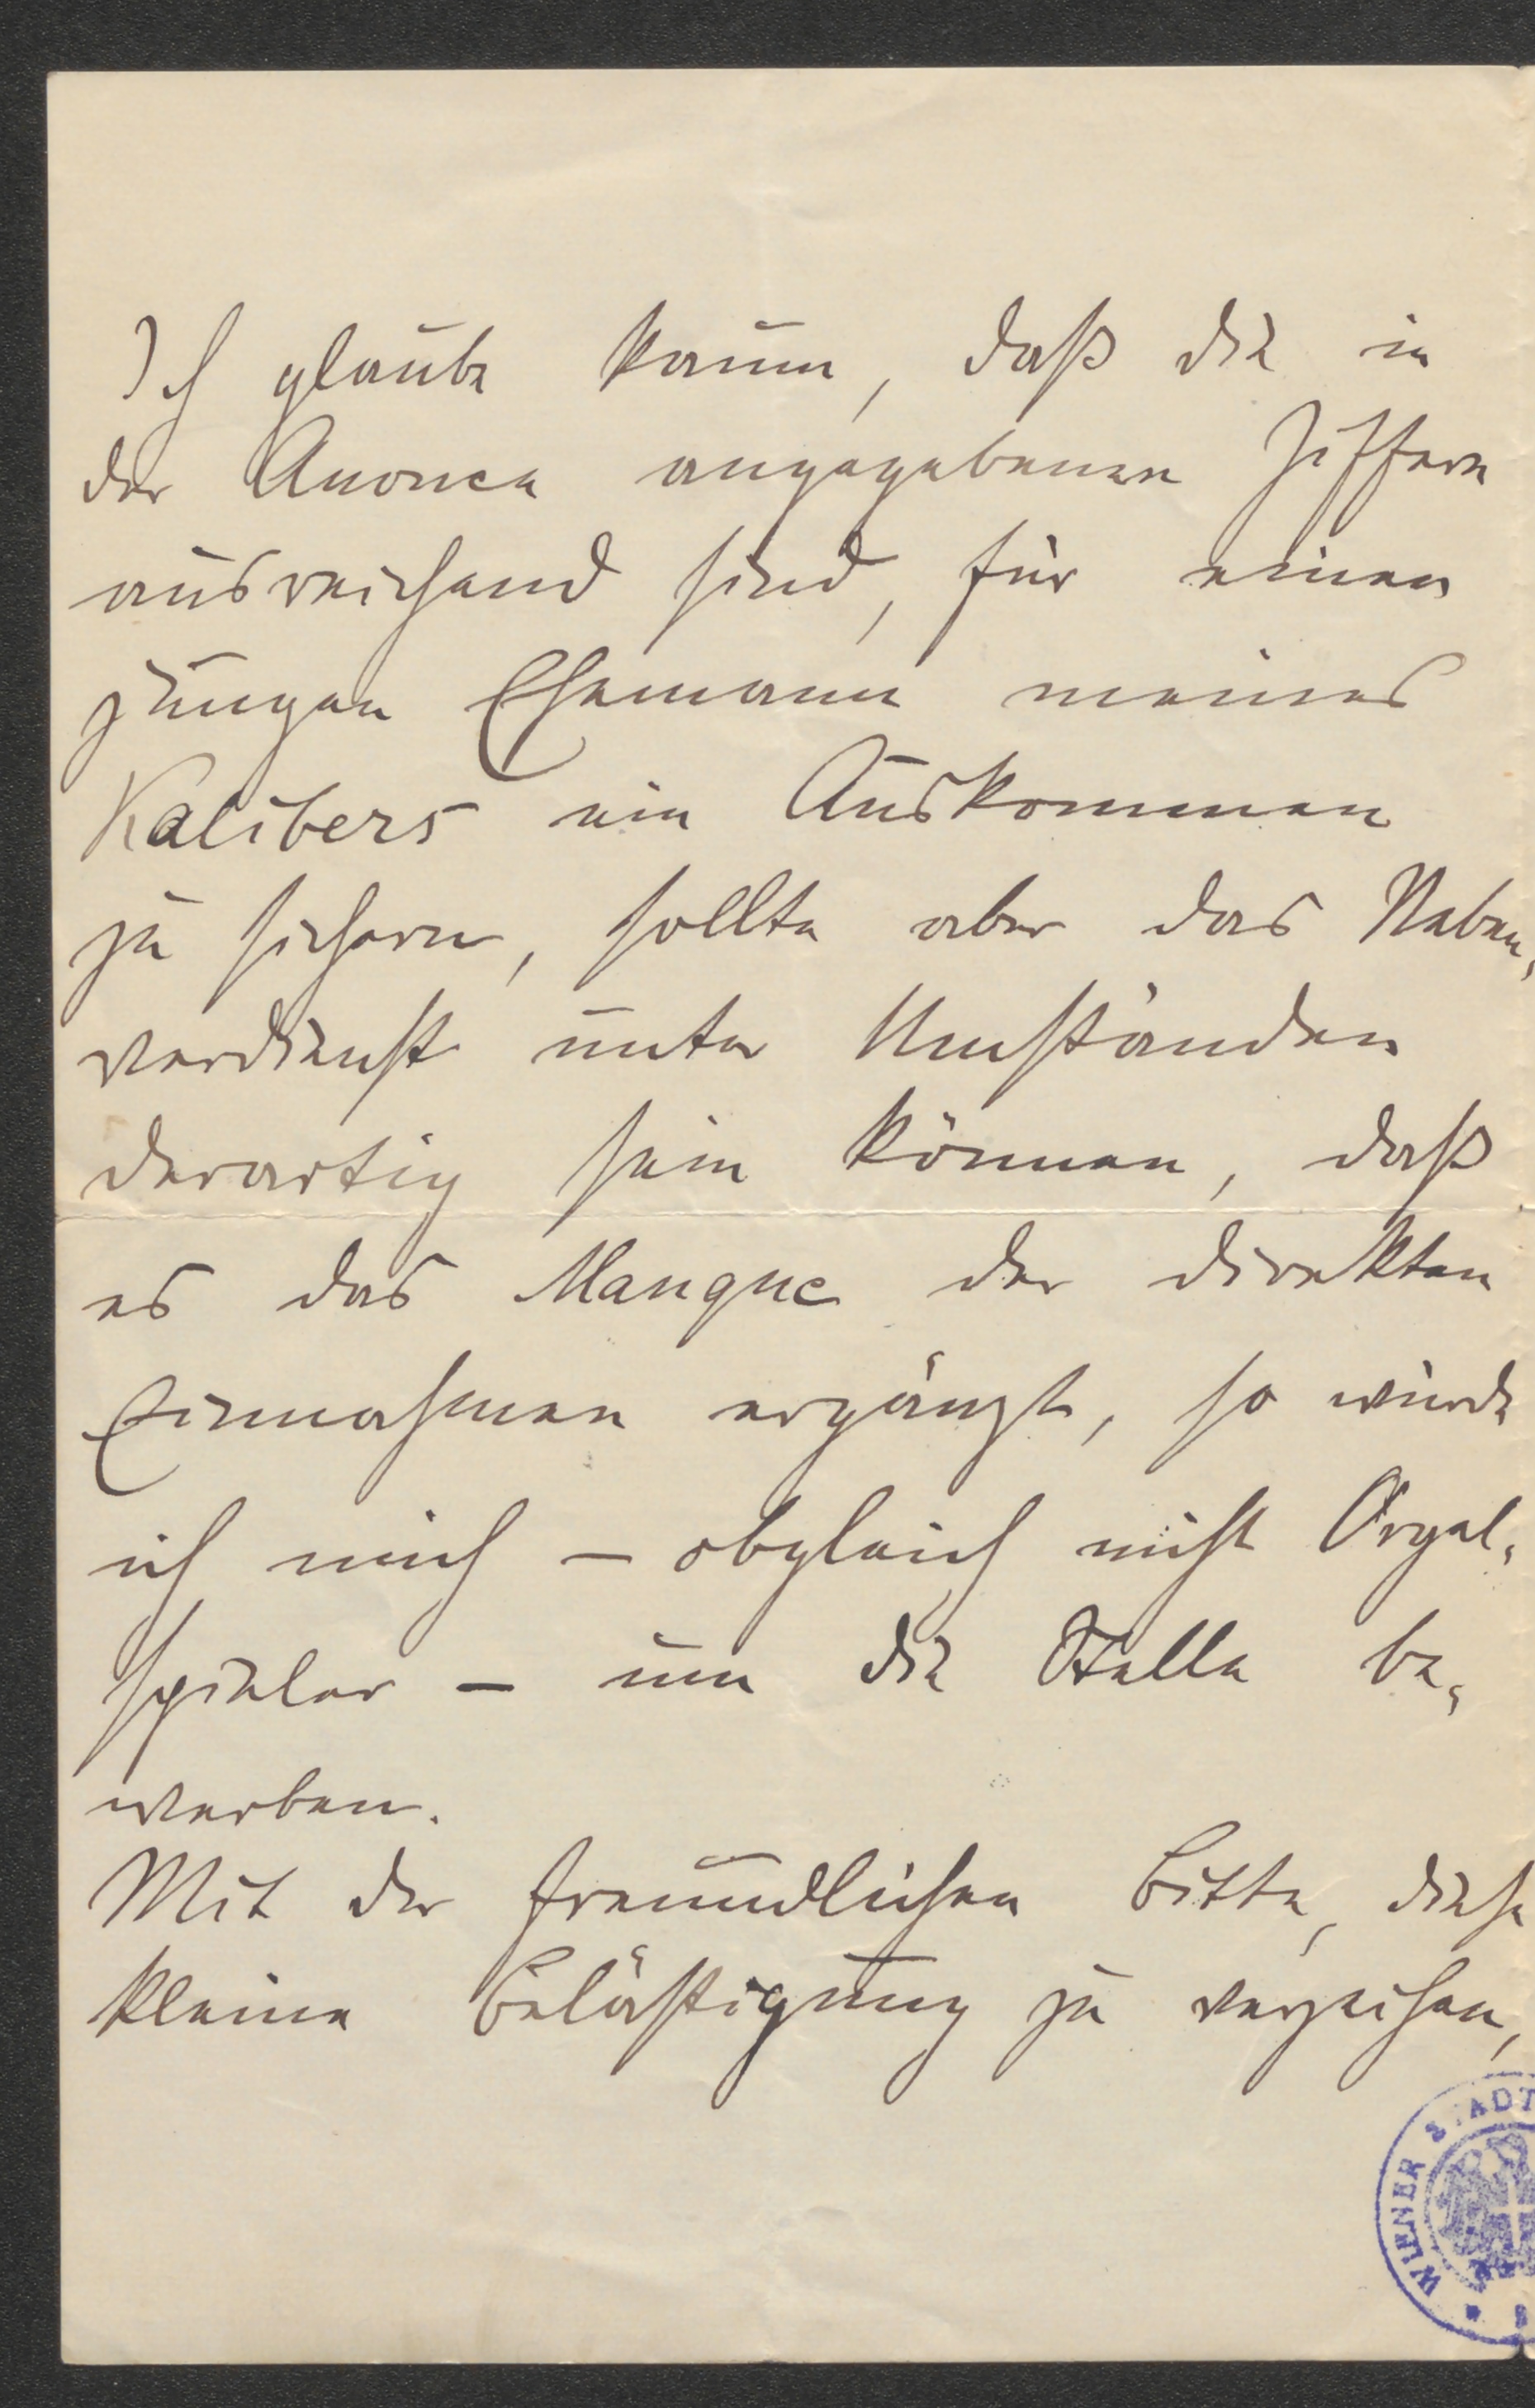 Ich glaube kaum, daß die in
der Anonce angegebenen Ziffern
ausreichend sind, für einen
jungen Ehemann meines
Kalibers ein Auskommen
zu sichern, sollte aber das Neben-
verdienst unter Umständen
derartig sein können, daß
es das Manque der direkten
Einnahmen ergänzt, so würde
ich mich – obgleich nicht Orgel-
spieler – um die Stelle be-
werben.
Mit der freundlichen Bitte, diese
kleine Belästigung zu verzeihen,
WIENER STADT